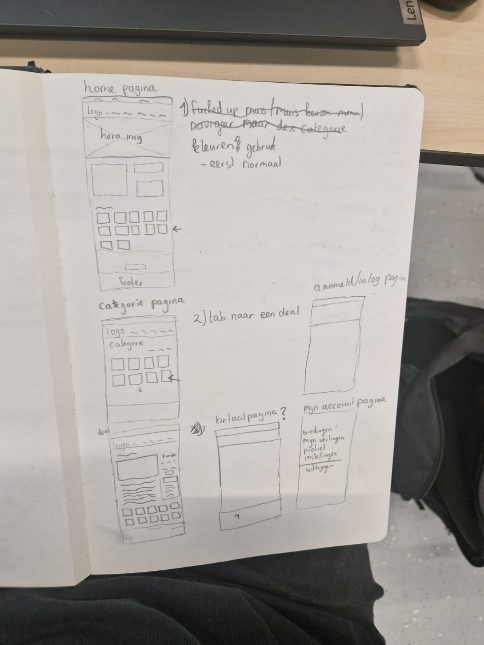 home pagina
logo
hero img
footer
1) Fucked up muis (muis boven menu)
navigeer naar de categorie
kleuren? gebruik
- eerst normaal
categorie pagina
logo
categorie
2) tab naar een deal
aanmeld/inlog pagina
deal
logo
betaalpagina?
?
mijn account pagina
biedingen
mijn veilingen
profiel
instellingen
uitloggen
Len